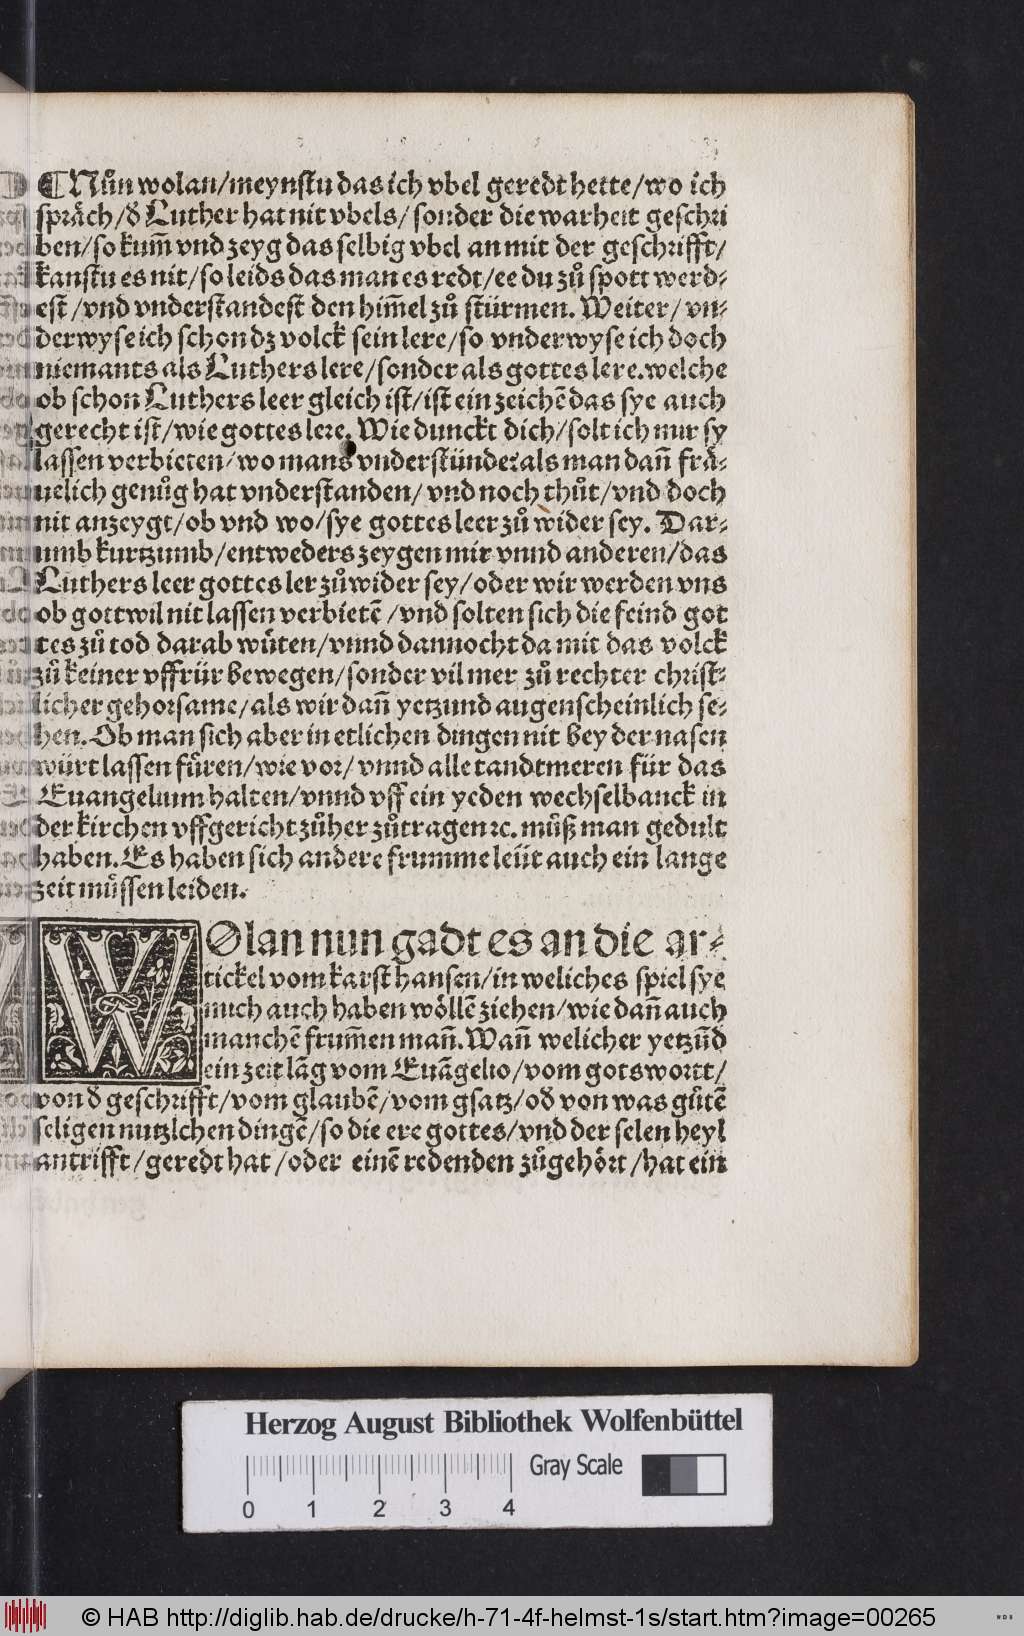 ¶ Nůn wolan/meynstu das ich vbel geredt hette/wo ich
spräch/d̕ Luther hat nit vbels/ sonder die warheit geschri
ben/so kum̃ vnd zeyg das selbig vbel an mit der geschrifft/
kanstu es nit/so leids das man es redt/ee du zů spott werd⸗
est/vnd vnderstandest den him̃el zů stürmen. Weiter/ vn⸗
derwyse ich schon dz volck sein lere/so vnderwyse ich doch
niemants als Luthers lere/sonder als gottes lere.welche
ob schon Luthers leer gleich ist/ist ein zeichẽ das sye auch
gerecht ist/wie gottes lere. Wie dunckt dich/solt ich mir sy
lassen verbieten/wo mans vnderstünde:als man dañ frå⸗
uelich genůg hat vnderstanden/ vnd noch thůt/vnd doch
nit anzeygt/ob vnd wo/sye gottes leer zů wider sey. Dar⸗
umb kurtzumb/entweders zeygen mir vnnd anderen/das
Luthers leer gottes ler zůwider sey/oder wir werden vns
ob gott wil nit lassen verbietẽ/vnd solten sich die feind got
tes zů tod darab wůten/vnnd dannocht da mit das volck
zů keiner vffrür bewegen/sonder vil mer zů rechter christ⸗
licher gehorsame/als wir dañ yetzund augenscheinlich se⸗
hen. Ob man sich aber in etlichen dingen nit bey der nasen
würt lassen fůren/wie vor/ vnnd alle tandtmeren für das
Euangelium halten/vnnd vff ein yeden wechselbanck in
der kirchen vffgericht zůher zůtragen ꝛc. můß man gedult
haben. Es haben sich andere frumme leüt auch ein lange
zeit můssen leiden.
WOlan nun gadt es an die ar⸗
tickel vom karst hansen/in weliches spiel sye
mich auch haben wöllẽ ziehen/wie dañ auch
manchẽ frum̃en mañ. Wañ welicher yetzũd
ein zeit lãg vom Euãgelio/vom gots wortt/
von d̕ geschrifft/vom glaubẽ/vom gsatz/od̕ von was gůtẽ
seligen nutzlchen dingẽ/so die ere gottes/vnd der selen heyl
antrifft/geredt hat/oder einẽ redenden zůgehört/hat ein
Herzog August Bibliothek Wolfenbüttel
Gray Scale
0 1 2 3 4
© HAB http://diglib.hab.de/drucke/h-71-4f-helmst-1s/start.htm?image=00265